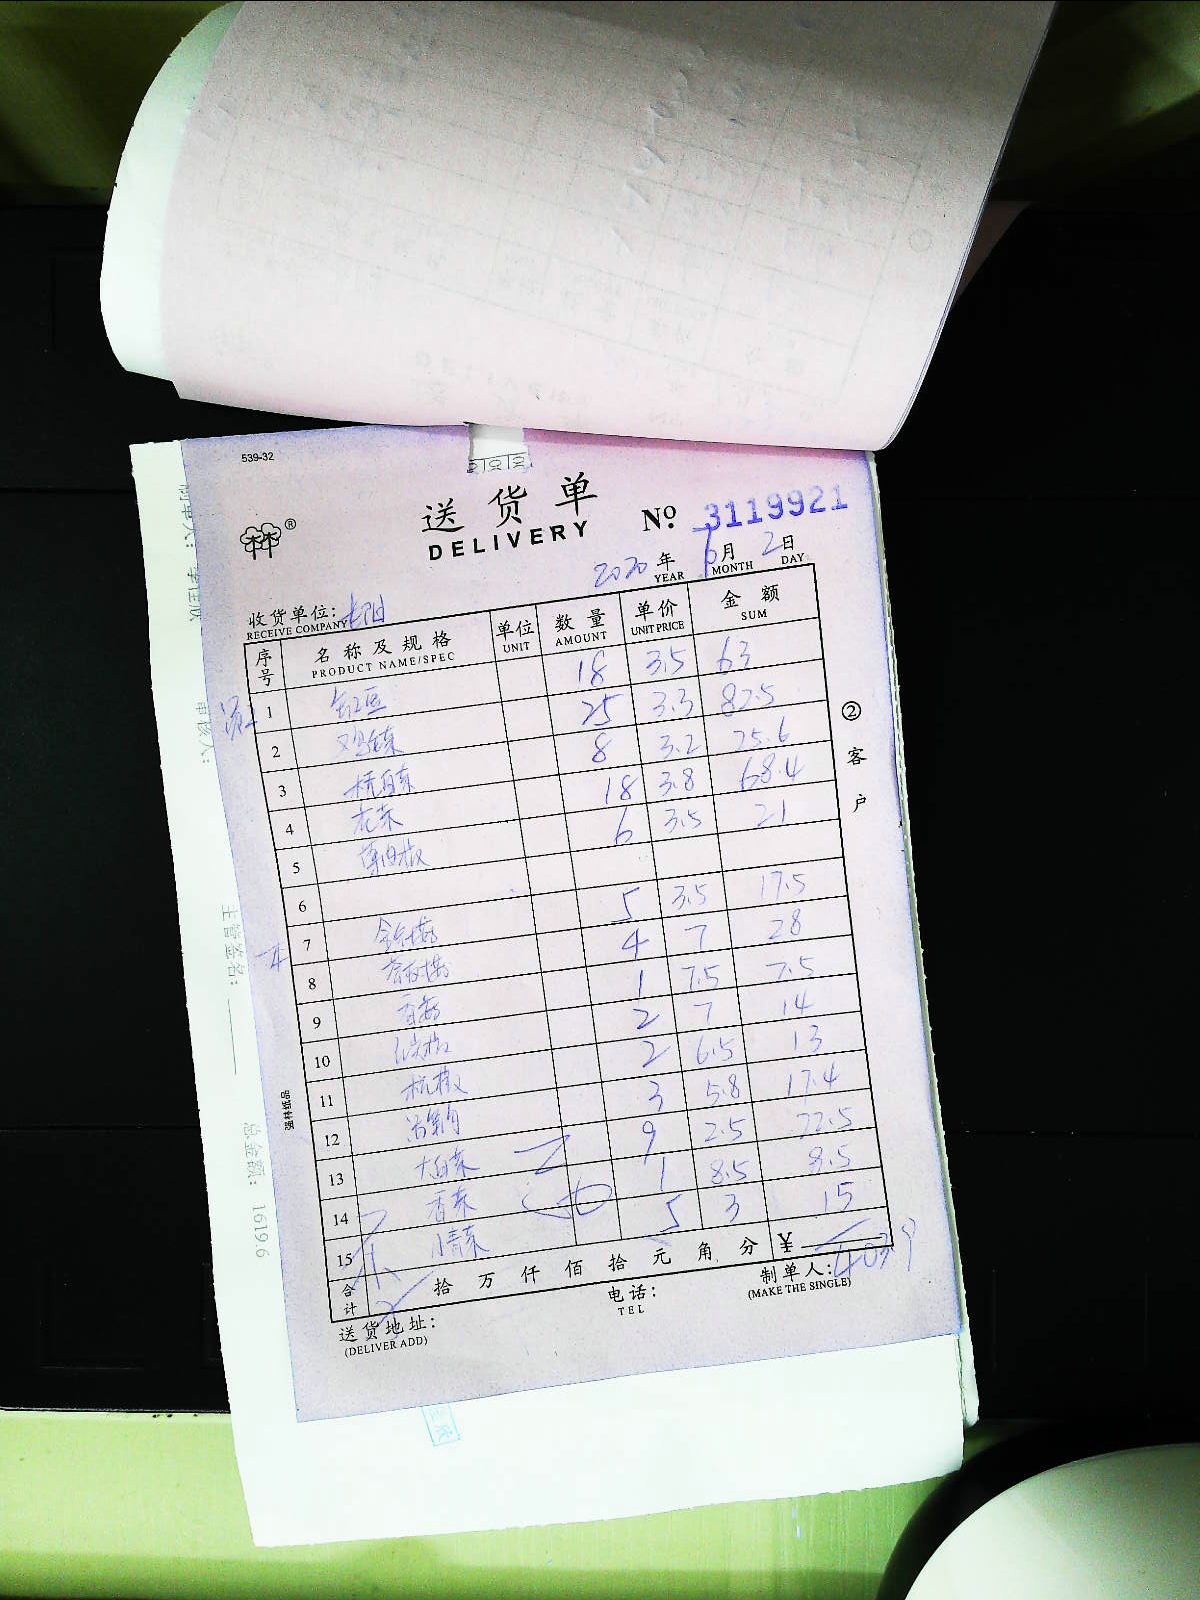 539-32
送货单
DELIVERY
№ 3119921
2020 年 YEAR 6 月 MONTH 2 日 DAY
收货单位:
RECEIVE COMPANY
序号 名称及规格 单位 数量 单价 金额
PRODUCT NAME/SPEC UNIT AMOUNT UNIT PRICE SUM
1 18 3.5 63
2 25 3.3 82.5
3 杭白菜 8 3.2 25.6
4 花菜 18 3.8 68.4
5 6 3.5 21
6
7 金针菇 5 3.5 17.5
8 4 7 28
9 香菇 1 7.5 7.5
10 2 7 14
11 杭椒 2 6.5 13
12 3 5.8 17.4
13 大白菜 9 2.5 22.5
14 香菜 1 8.5 8.5
15 小青菜 5 3 15
合计 拾 万 仟 佰 拾 元 角 分 ¥
送货地址:
(DELIVER ADD)
电话:
TEL
制单人:
(MAKE THE SINGLE)
② 客户
审核人:
主管签名:
总金额: 1619.6